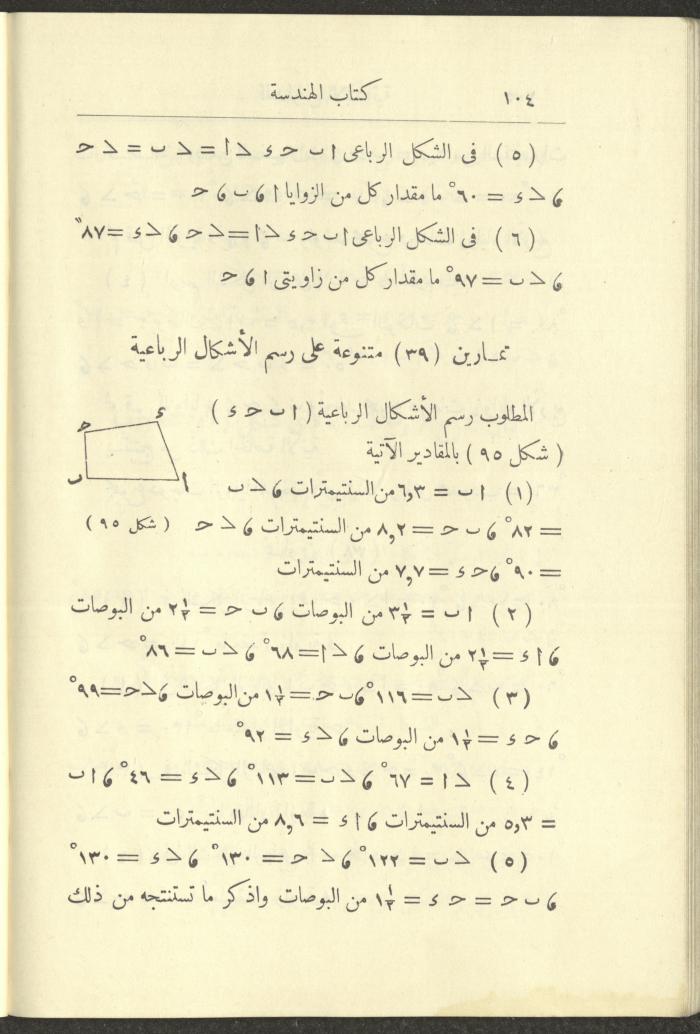 ١٠٤ كتاب الهندسة
(٥) فى الشكل الرباعى ا ب ح ء ∠ا = ∠ب = ∠ح
6 ∠ء = ٦٠° ما مقدار كل من الزوايا ا 6 ب 6 ح
(٦) فى الشكل الرباعى ا ب ح ء ∠ا = ∠ح 6 ∠ء = ٨٧°
6 ∠ب = ٩٧° ما مقدار كل من زاويتى ا 6 ح
تمـارين (٣٩) متنوعة على رسم الأشكال الرباعية
المطلوب رسم الأشكال الرباعية (ا ب ح ء)
(شكل ٩٥) بالمقادير الآتية
ء
ح
ا
ب
(شكل ٩٥)
(١) ا ب = ٦,٣ من السنتيمترات 6 ∠ب
= ٨٢° 6 ب ح = ٨,٢ من السنتيمترات 6 ∠ح
= ٩٠° 6 ح ء = ٧,٧ من السنتيمترات
(٢) ا ب = ٣½ من البوصات 6 ب ح = ٢½ من البوصات
6 ا ء = ٢½ من البوصات 6 ∠ا = ٦٨° 6 ∠ب = ٨٦°
(٣) ∠ب = ١١٦° 6 ب ح = ١½ من البوصات 6 ∠ح = ٩٩°
6 ح ء = ١½ من البوصات 6 ∠ء = ٩٢°
(٤) ∠ا = ٦٧° 6 ∠ب = ١١٣° 6 ∠ء = ٤٦° 6 ا ب
= ٥,٣ من السنتيمترات 6 ا ء = ٨,٦ من السنتيمترات
(٥) ∠ب = ١٢٢° 6 ∠ح = ١٣٠° 6 ∠ء = ١٣٠°
6 ب ح = ح ء = ١½ من البوصات واذكر ما تستنتجه من ذلك